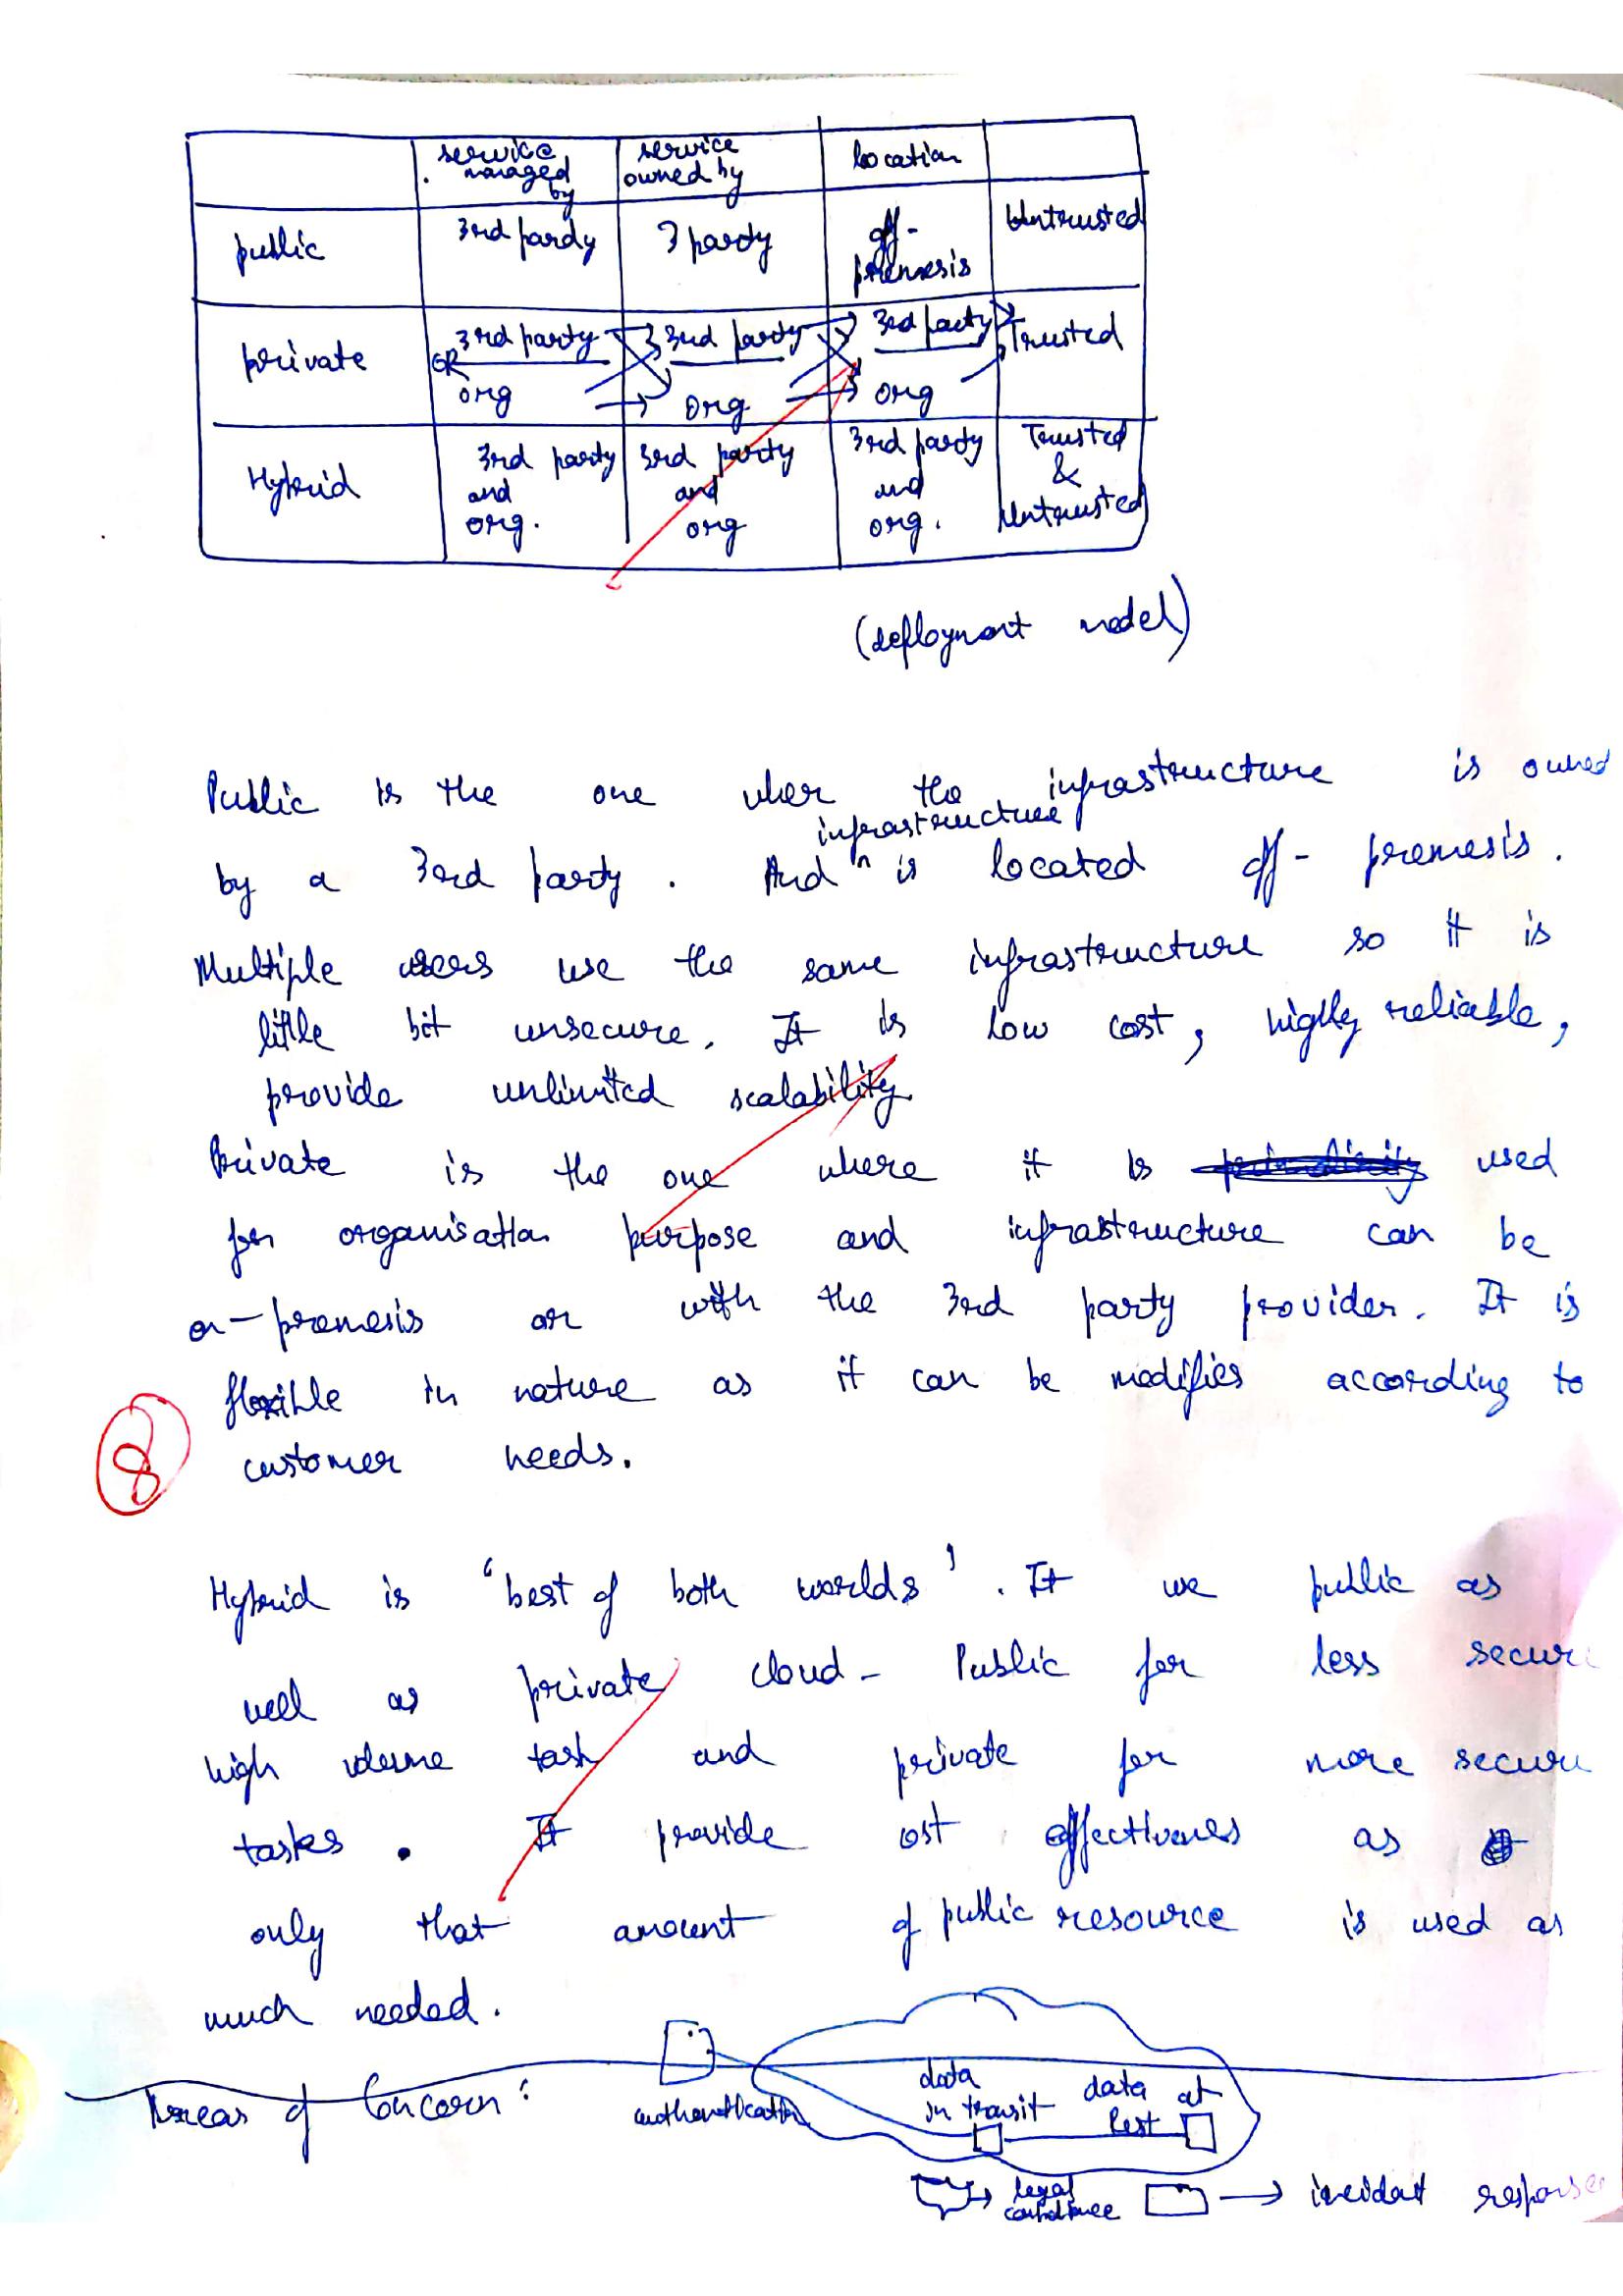 service managed by
service owned by
location
public
3rd pardy
3 party
off-
premesis
Untrusted
private
3rd party
OR
org
3rd party
org
3rd party
org
Trusted
Hybrid
3rd party
and
org.
3rd party
and
org
3rd party
and
org.
Trusted
&
Untrusted
(deployment model)
Public is the one wher the infrastructure is owned
by a 3rd party. And infrastructure is located off-premesis.
Multiple users use the same infrastructure so it is
little bit unsecure. It is low cost, highly reliable,
provide unlimited scalability.
Private is the one where it is used
for organisation purpose and infrastructure can be
on-premesis or with the 3rd party provider. It is
flexible in nature as it can be modifies according to
customer needs.
8
Hybrid is 'best of both worlds'. It use public as
well as private cloud. Public for less secure
high volume task and private for more secure
tasks. It provide cost effectivenes as
only that amount of public resource is used as
much needed.
Areas of Concern:
authentication
data
in transit
data at
Rest
legal
compliance
incident response